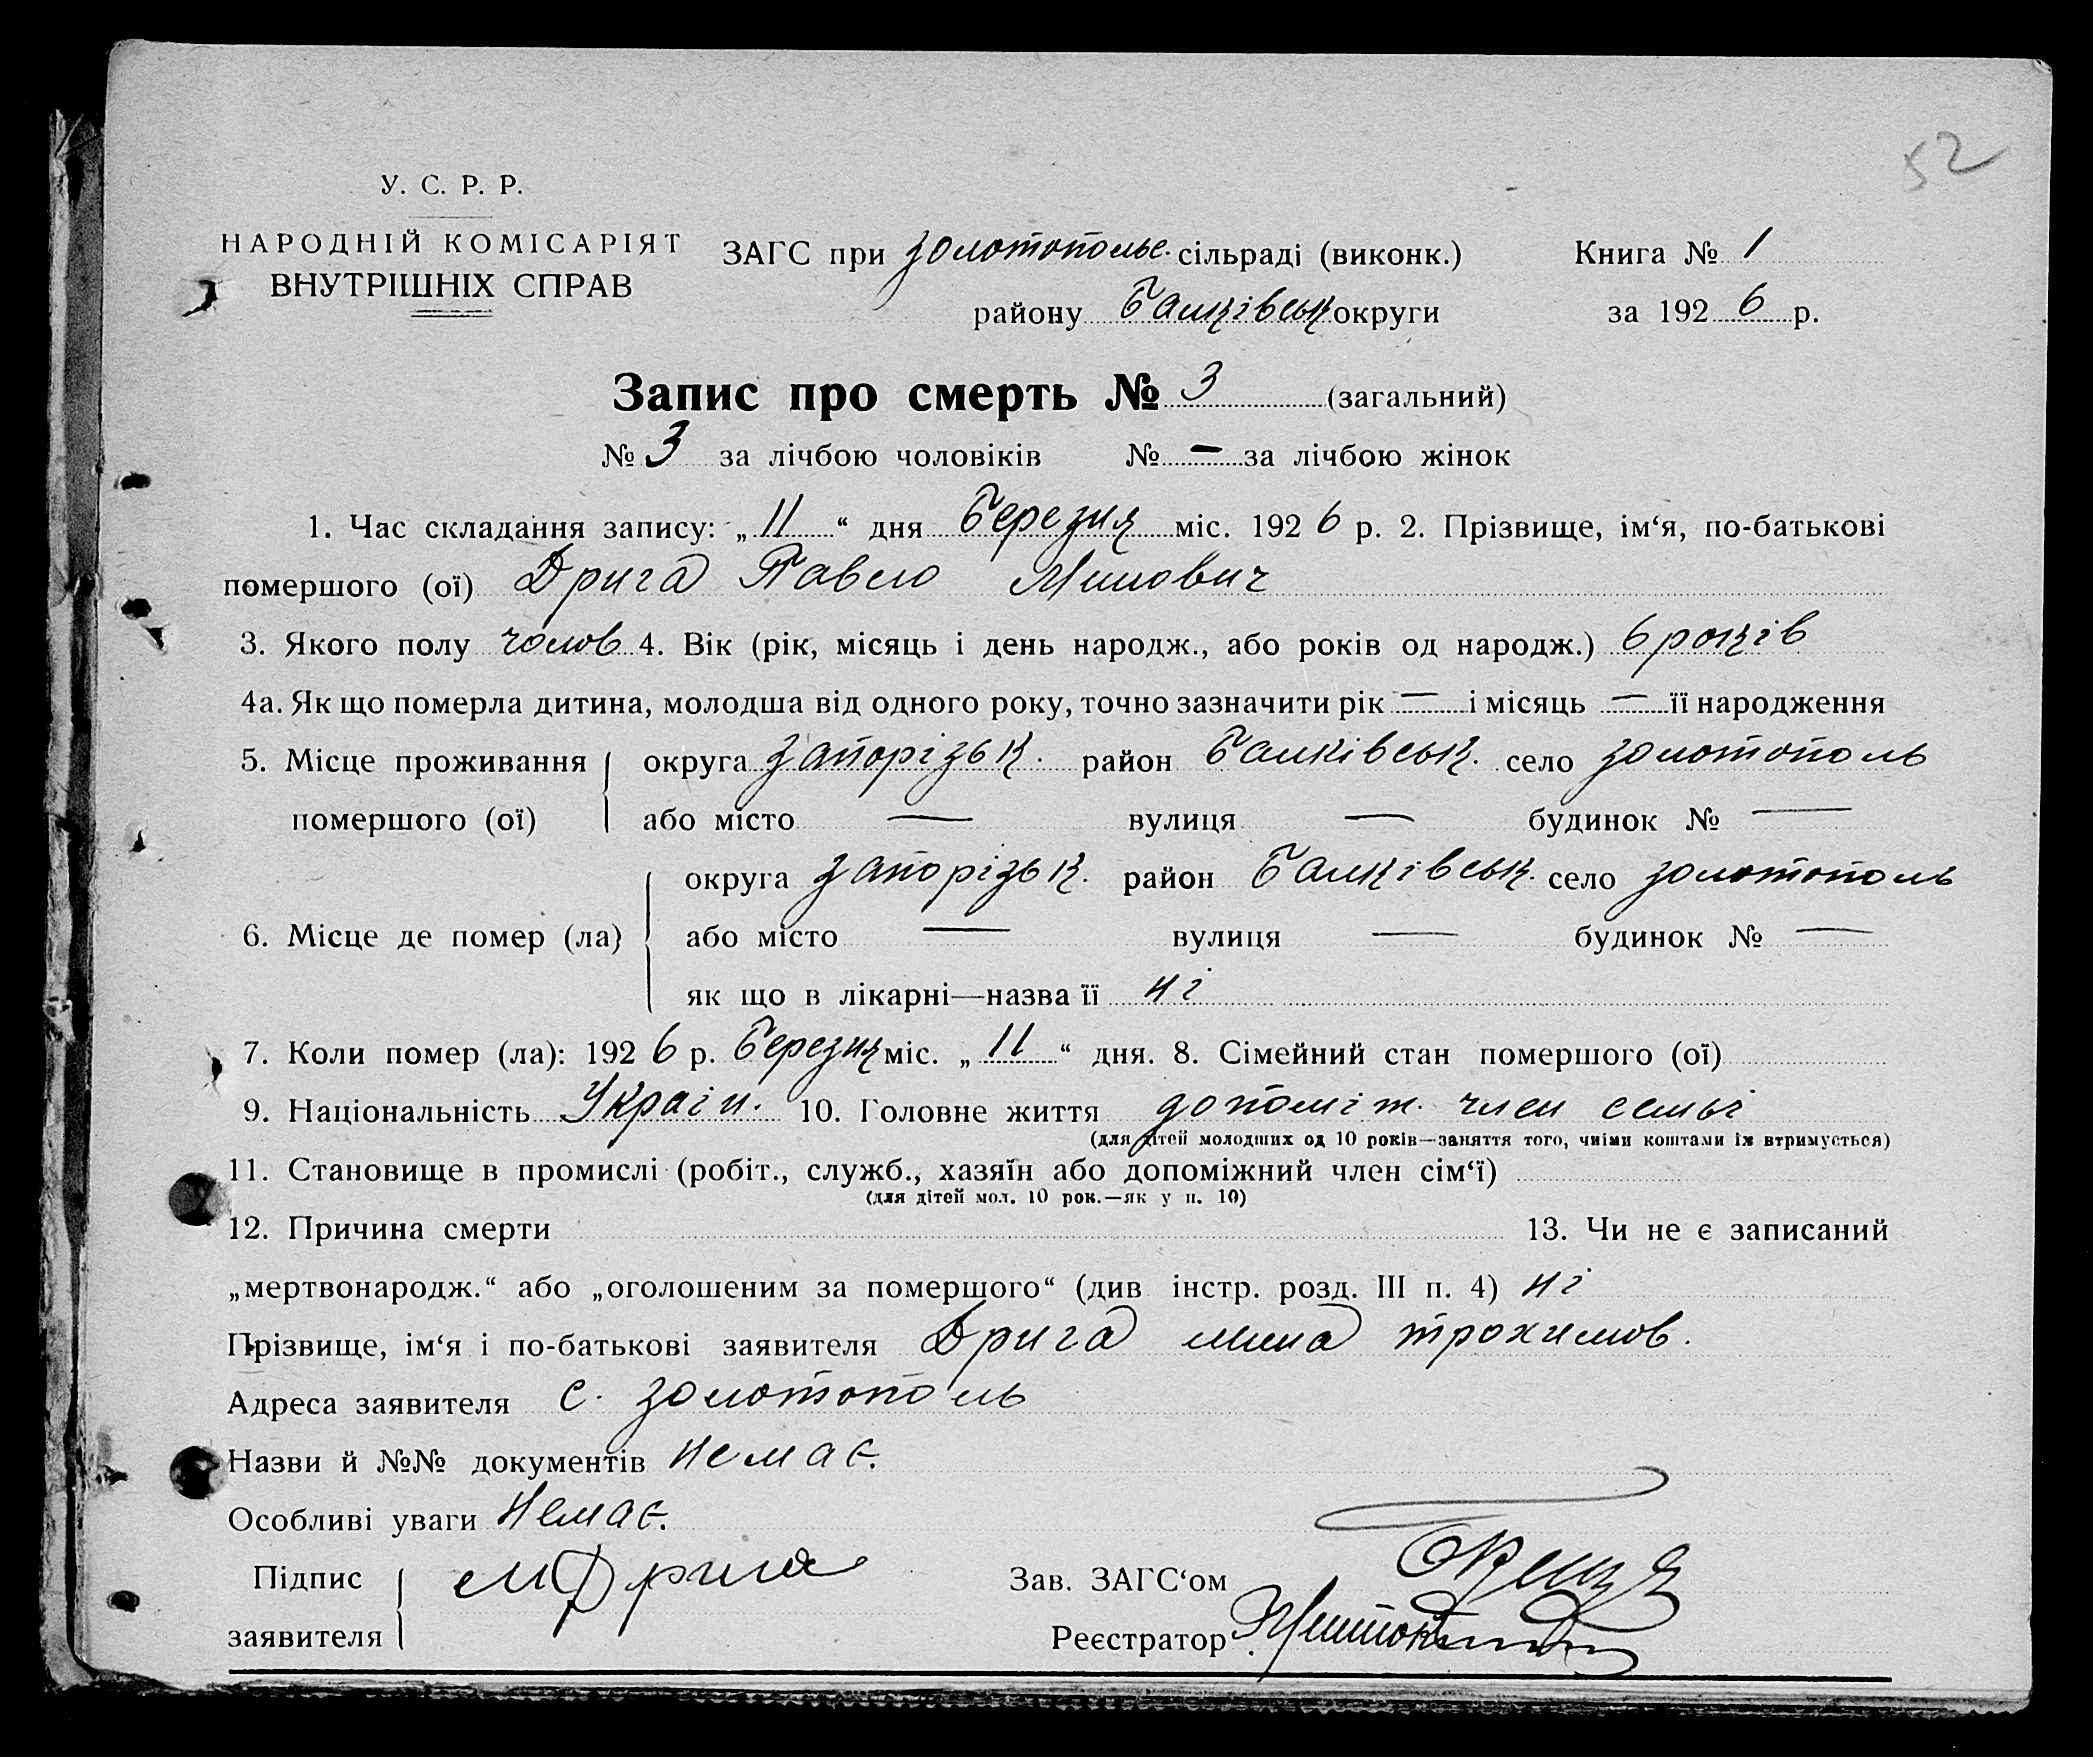 52
У. С. Р. Р.
НАРОДНІЙ КОМІСАРІЯТ
ВНУТРІШНІХ СПРАВ
ЗАГС при Золотопольс. сільраді (виконк.) Книга № 1
району Балківськ округи за 1926 р.
Запис про смерть № 3 (загальний)
№ 3 за лічбою чоловіків № — за лічбою жінок
1. Час складання запису: „11“ дня Березня міс. 1926 р. 2. Прізвище, ім‘я, по-батькові
помершого (ої) Дрига Павло Минович
3. Якого полу чолов 4. Вік (рік, місяць і день народж., або років од народж.) 6 років
4а. Як що померла дитина, молодша від одного року, точно зазначити рік — і місяць — її народження
5. Місце проживання округа Запорізьк. район Балківськ. село Золотополь
помершого (ої) або місто — вулиця — будинок № —
округа Запорізьк. район Балківськ. село Золотополь
6. Місце де помер (ла) або місто — вулиця — будинок № —
як що в лікарні—назва її ні
7. Коли помер (ла): 1926 р. Березня міс. „11“ дня. 8. Сімейний стан помершого (ої)
9. Національність Україн. 10. Головне життя допоміж. член семьі
(для дітей молодших од 10 років—заняття того, чиїми коштами їх втримується)
11. Становище в промислі (робіт., служб., хазяїн або допоміжний член сім‘ї)
(для дітей мол. 10 рок.—як у п. 10)
12. Причина смерти 13. Чи не є записаний
„мертвонародж.“ або „оголошеним за помершого“ (див інстр. розд. III п. 4) ні
Прізвище, ім‘я і по-батькові заявителя Дрига Мина Трохимов.
Адреса заявителя с. Золотополь
Назви й №№ документів Немає.
Особливі уваги Немає.
Підпис М Дрига Зав. ЗАГС‘ом
заявителя Реєстратор